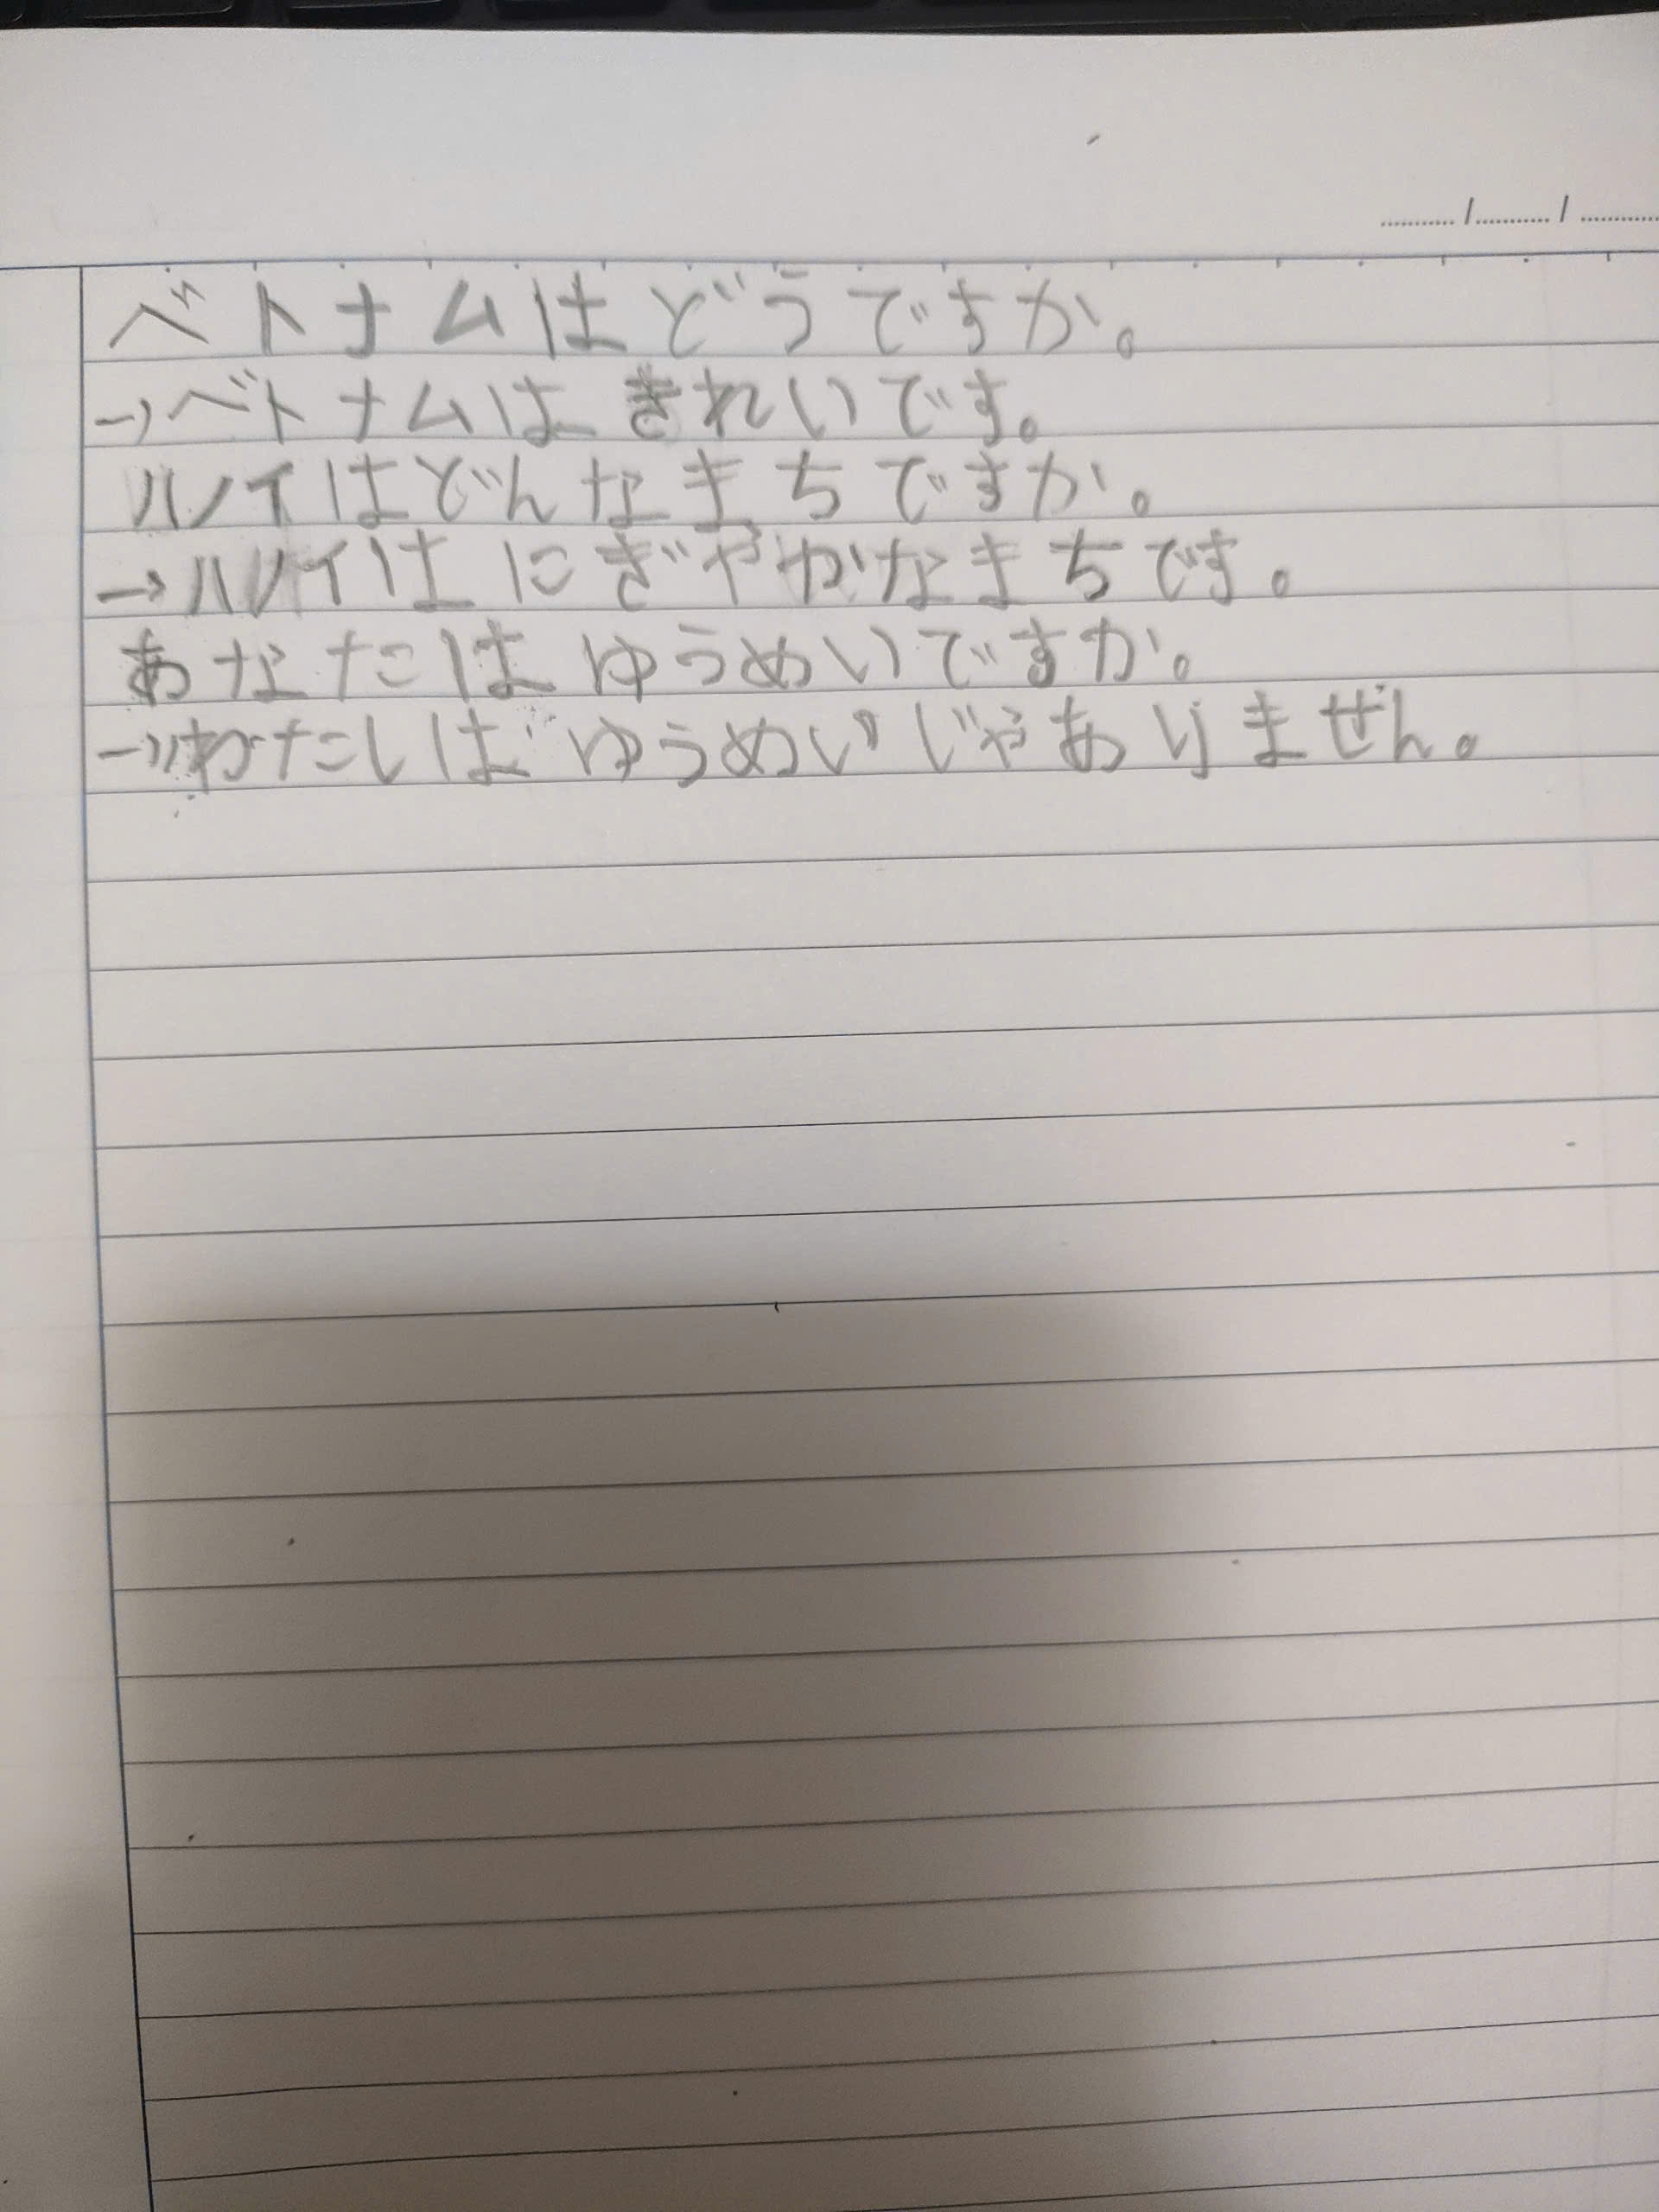 ベトナムはどうですか。
→ベトナムはきれいです。
ハノイはどんなまちですか。
→ハノイはにぎやかなまちです。
あなたはゆうめいですか。
→わたしはゆうめいじゃありません。